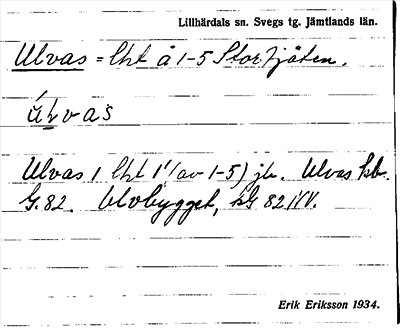 Lillhärdals sn. Svegs tg. Jämtlands län.
Ulvas = lht å 1-5 Stor Tjåten.
úlvas
Ulvas, lht 1¹ (av 1-5) jb. Ulvas kb.
G.82. Utbygget, kG 82 NV.
Erik Eriksson 1934.